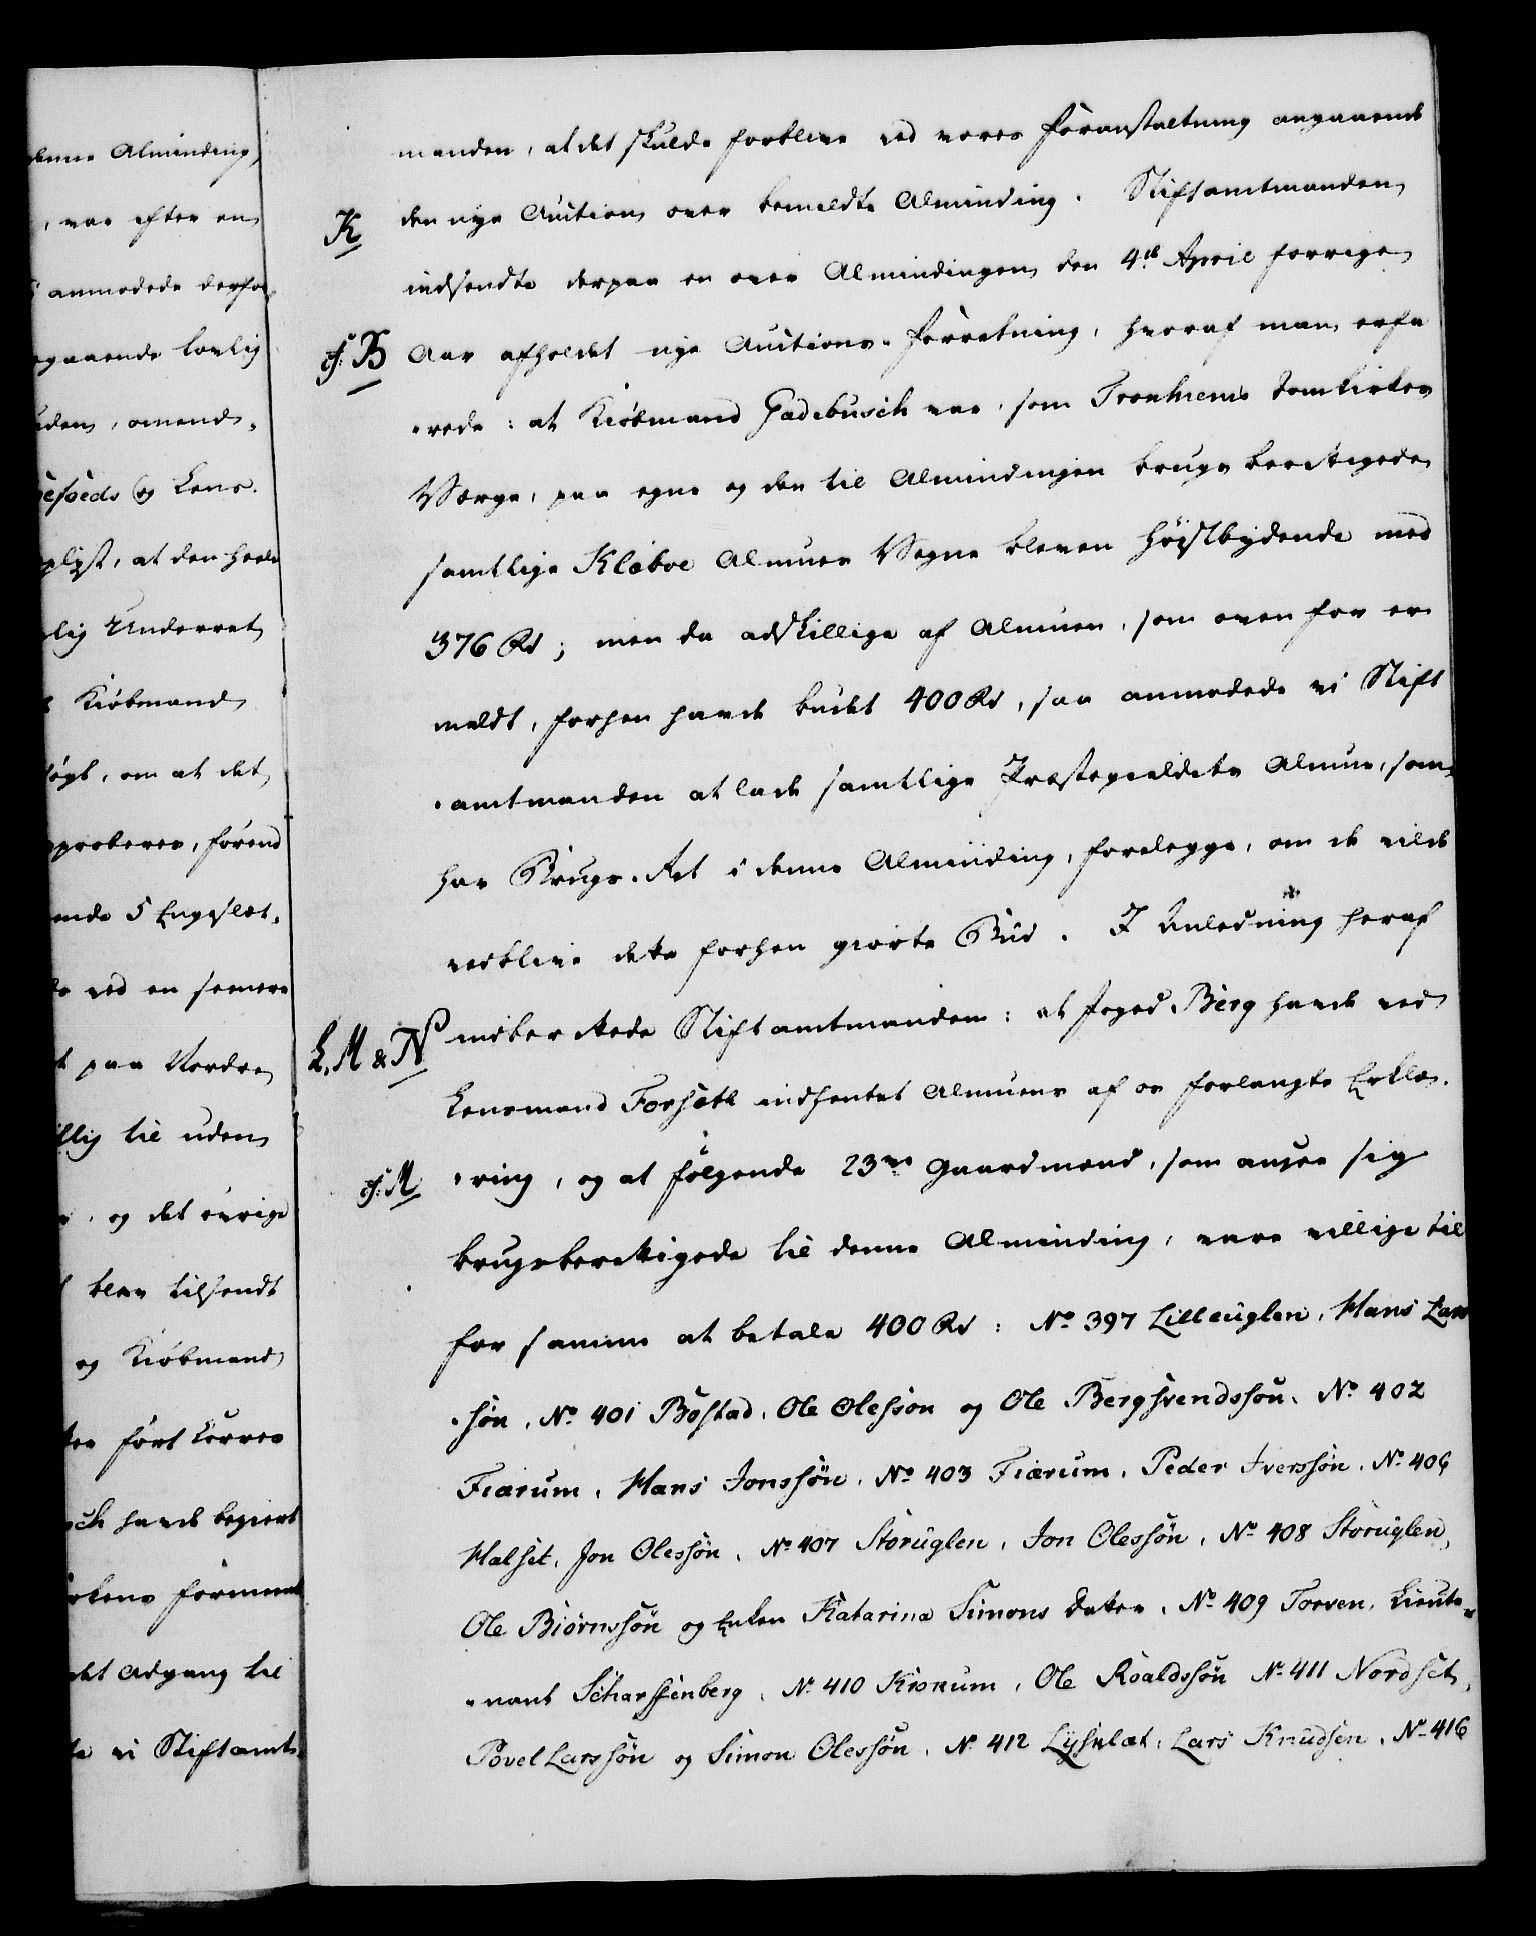 denne Alminding,
, var efter en
anmodede derfor
gaaende lovlig
uden, omend-
efoeds og Lens-
plyst, at den heele
lig Underret,
Kiöbmand
sögt, om at det
pproberes, förend
ende 5 Engeslet-
ved en senere
t paa Nordre
llig til uden
, og det övrige
blev tilsendt
og Kiöbmand
ter fört Körver
sch havde begiert
irkens formeent
det Adgang til
te vi Stiftamt-
manden, at det skulde forblive ved vores Foranstaltning angaaende
K den nye Auction over bemeldte Alminding. Stiftamtmanden
indsendte derpaa en over Almindingen den 4de April forrige
cf. B Aar afholdet nye Auctions-Forretning, hvoraf man erfa
-rede: at Kiöbmand Gadebusch var, som Tronhiems Domkirkes
Værge, paa egne og den til Almindingen brugs berettigede
samtlige Klæboe Almues Vegne bleven höistbydende med
376 Rd; men da adskillige af Almuen, som oven for er
meldt, forhen havde budet 400 Rd, saa anmodede vi Stift
-amtmanden at lade samtlige Præstegieldets Almue, som
har Brugs-Ret i denne Alminding, forelegge, om de vilde
vedblive dette forhen giorte Bud. I Anledning heraf
L, M & N indberettede Stiftamtmanden: at Foged Berg havde ved
Lensmand Forsetl indhentet Almuens af os forlangte Erklæ-
cf. M -ring, og at fölgende 23de Gaardmænd, som ansee sig
brugsberettigede til denne Alminding, vare villige til
for samme at betale 400 Rd: No 397 Lilleuglen, Hans Lars
-sön, No 401 Böstad, Ole Olesson og Ole Bergsvendssön, No 402
Fiærum, Hans Jonssön, No 403 Fiærum, Peder Iverssön, No 406
Halset, Jon Olessön, No 407 Störuglen, Jon Olessön, No 408 Storuglen,
Ole Biörnssön og Enken Katarina Simons Datter, No 409 Torven, Lieute-
-nant Scharffenberg, No 410 Krokum, Ole Roaldssön No 411 Nordset,
Povel Larssön og Simon Olessön, No 412 Lysklæt, Lars Knudsen, No 416